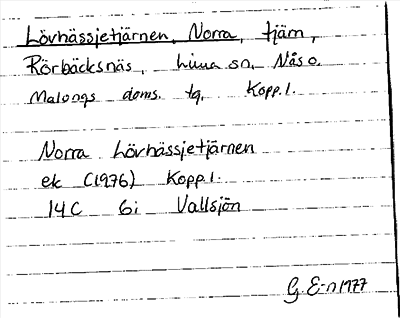 Lövhässjetjärnen, Norra, tjärn,
Rörbäcksnäs, Lima sn. Nås o.
Malungs doms. tg. Kopp.l.
Norra Lövhässjetjärnen
ek (1976) Kopp.l.
14C 6i Vallsjön
G. E-n 1977